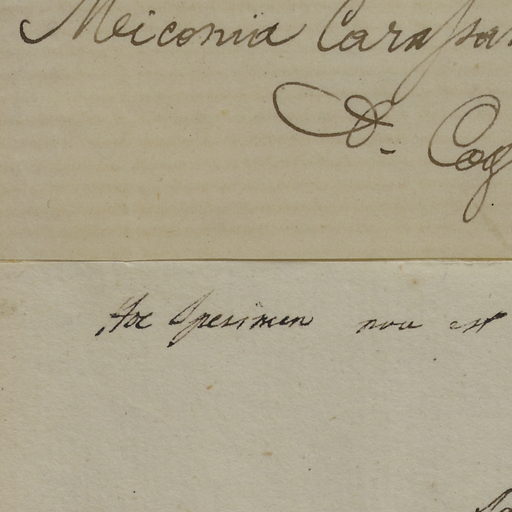 Miconia Carassan
D. Cog
Hoc Specimen non est